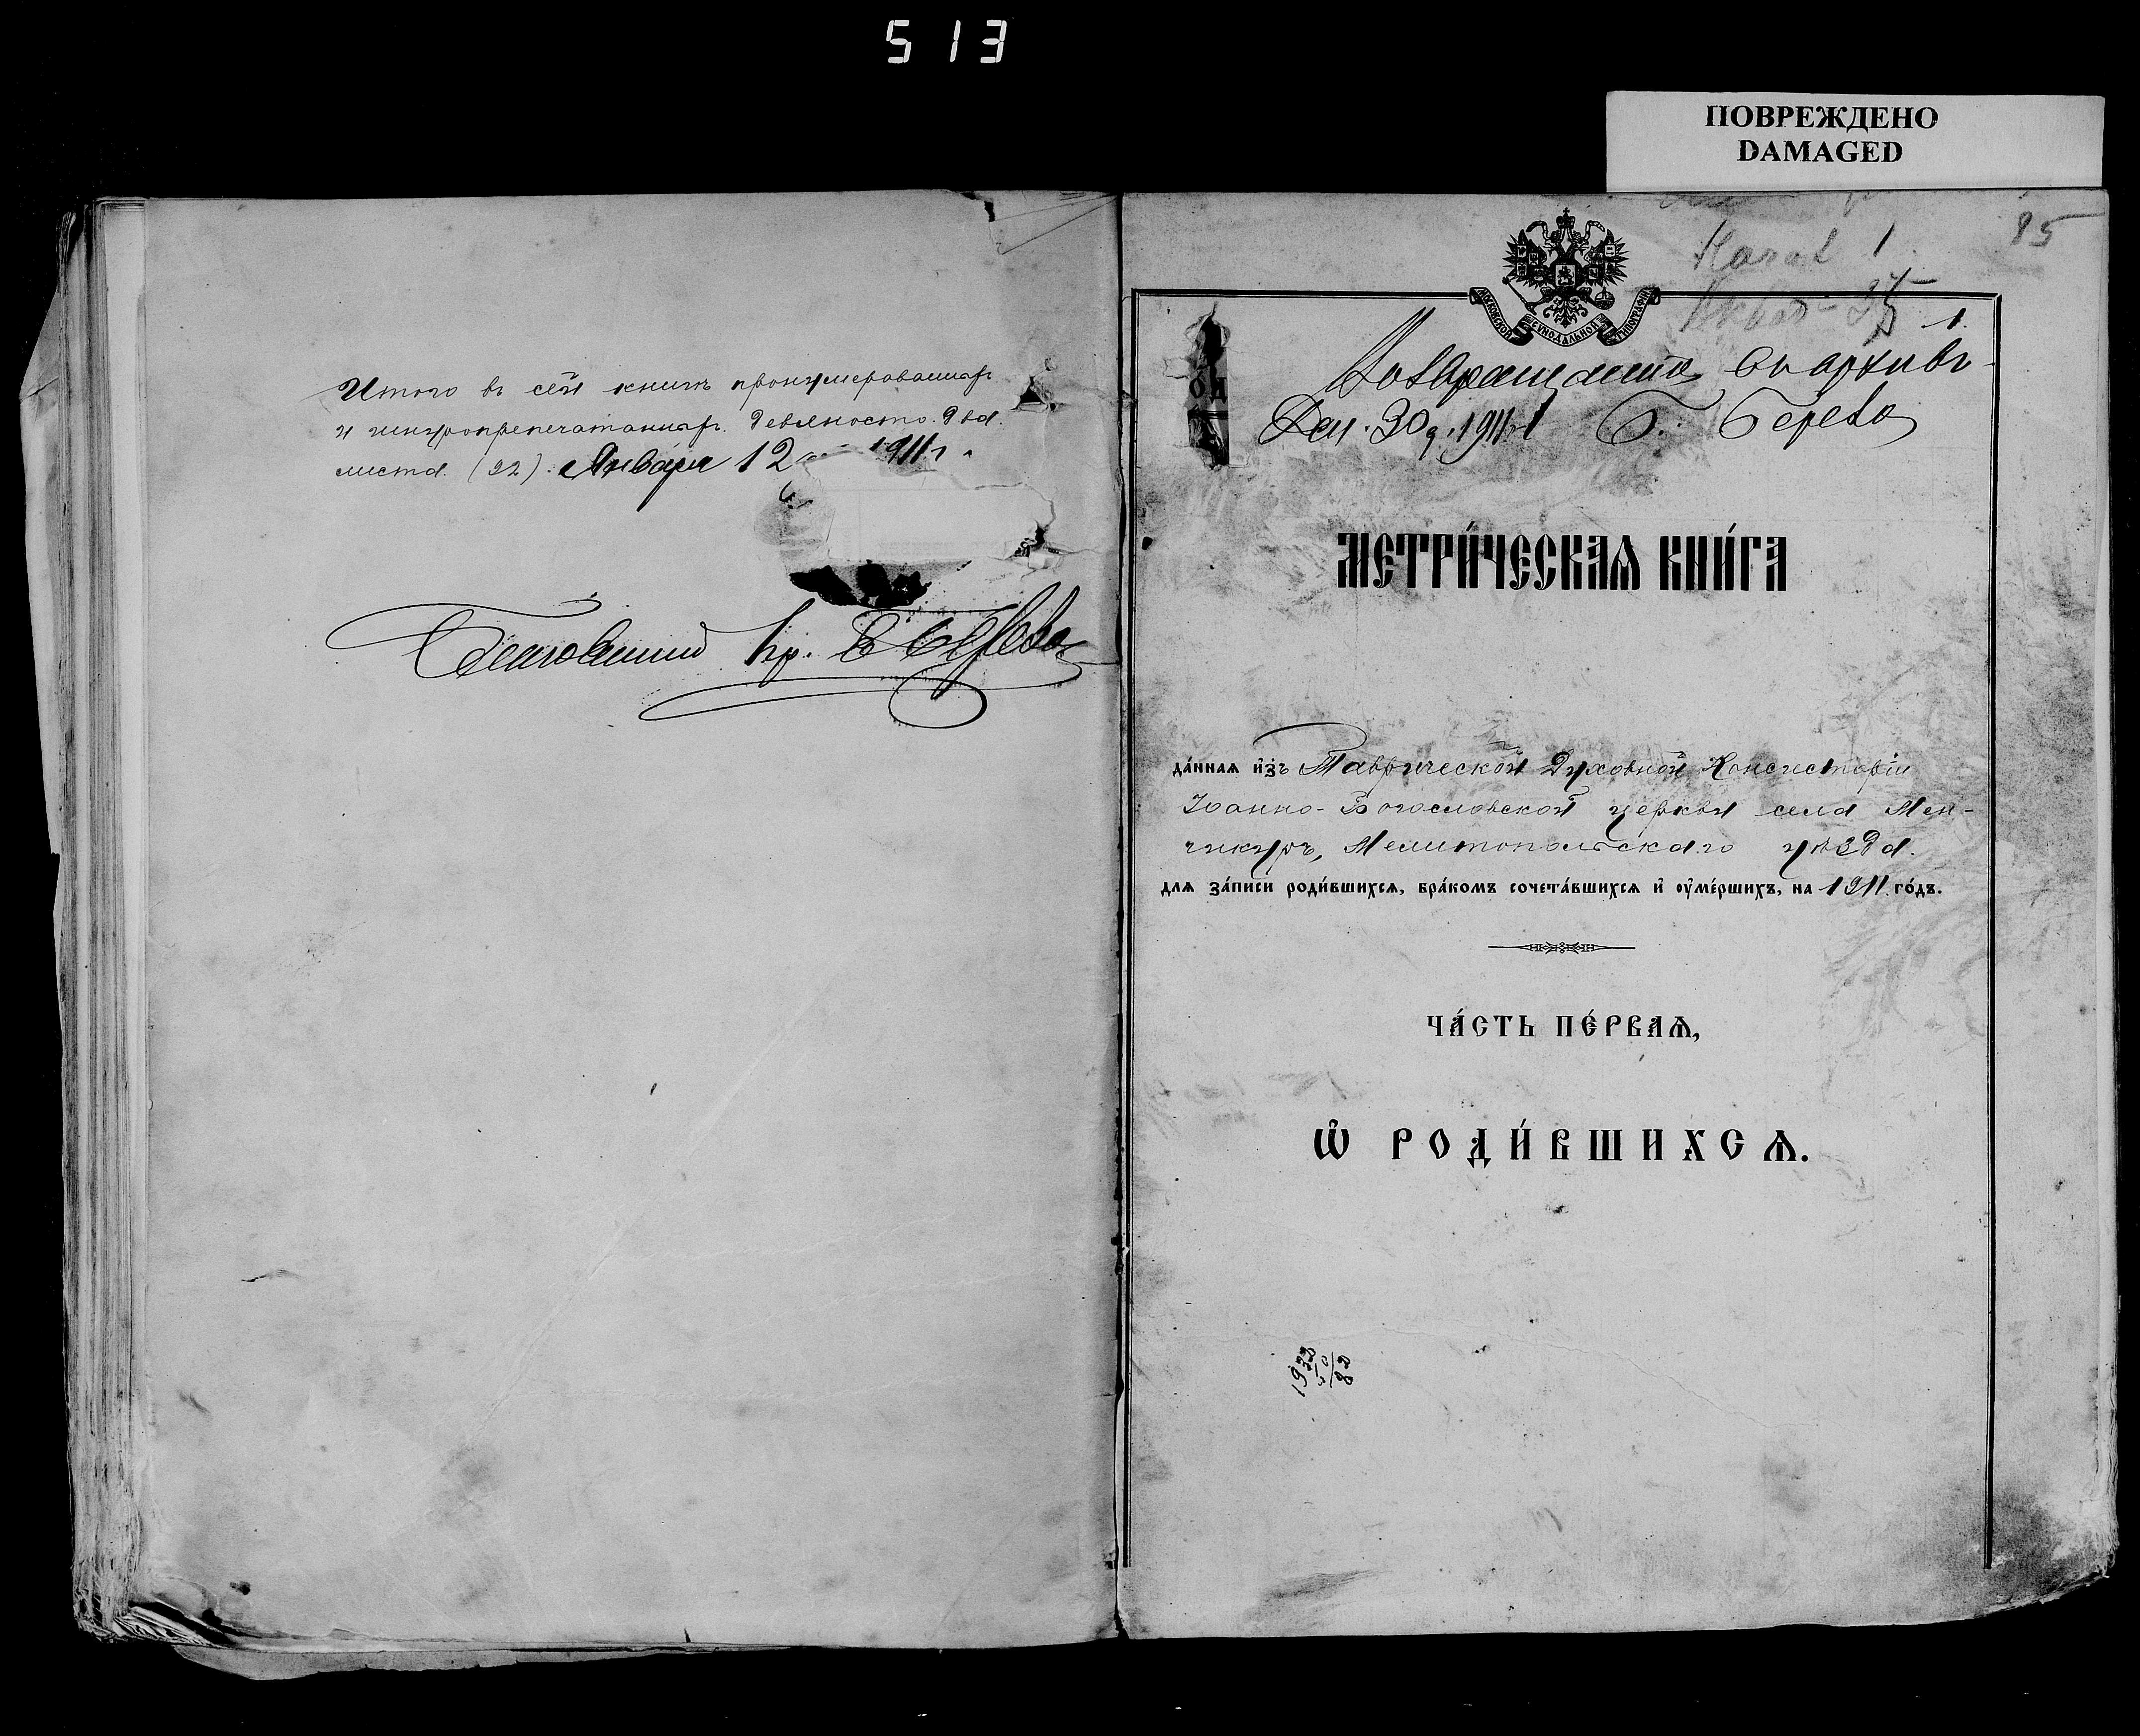 513
ПОВРЕЖДЕНО
DAMAGED
Итого въ сей книгѣ пронумерованныхъ
и шнуропрепечатанныхъ девяносто два
листа (92). Января 12 1911 г.
85
1
1.
МОСКОВСКОЙ СѴНОДАЛЬНОЙ ТИПОГРАФІИ
въ архивъ
Дек. 30 д. 1911 г.
МЕТРИ́ЧЕСКАѦ КНИ́ГА
да́ннаѧ и҆зъ Таврической Духовной Консисторіи
Іоанно-Богословской церкви села Мен-
чикуръ, Мелитопольскаго уѣзда.
для за́писи роди́вшихсѧ, бра́комъ сочета́вшихсѧ и҆ ᲂу҆ме́ршихъ, на 1911 го́дъ.
ЧА́СТЬ ПЕ́РВАѦ,
Ѽ РОДИ́ВШИХСѦ.